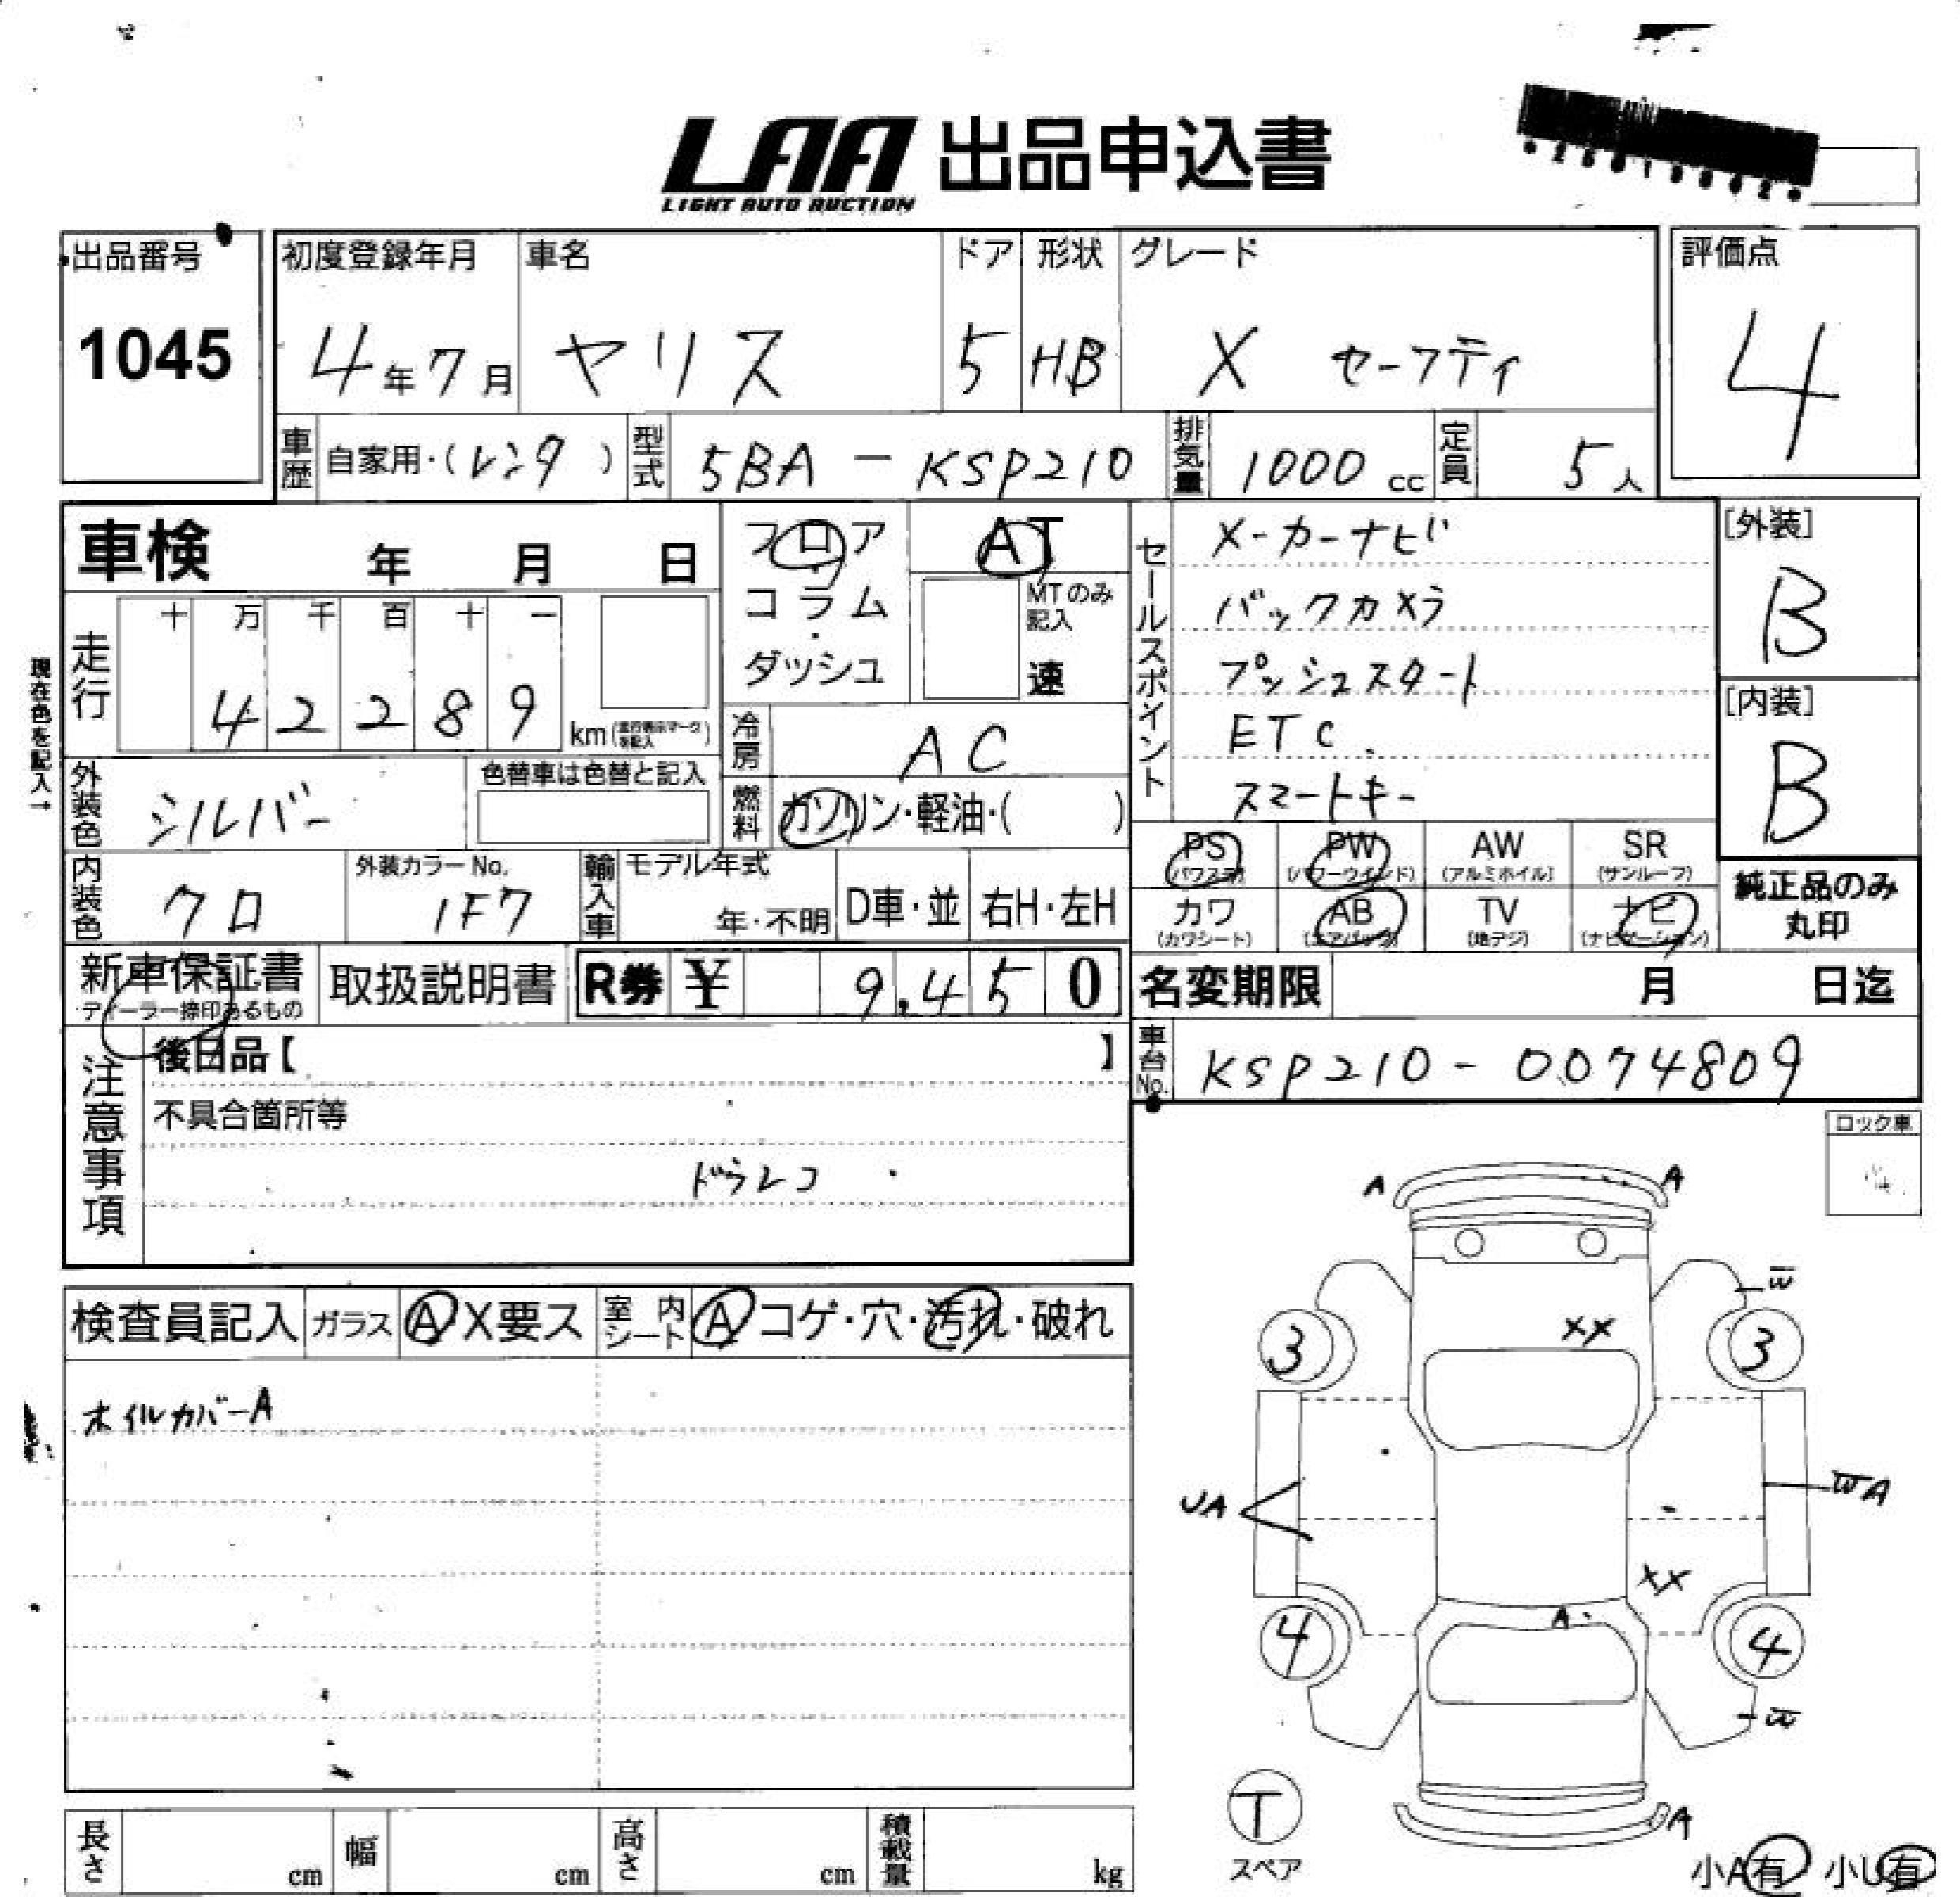 LAA 出品申込書
LIGHT AUTO AUCTION
出品番号 初度登録年月 車名 ドア 形状 グレード 評価点
1045 4年7月 ヤリス 5 HB X セーフティ 4
車歴 自家用・(レンタ) 型式 5BA-KSP210 排気量 1000cc 定員 5人
車検 年 月 日
フロア
コラム
・
ダッシュ
AT
MTのみ記入
速
現在色を記入→
走行 十 万 千 百 十 一
42289 km
外装色 シルバー 色替車は色替と記入
内装色 クロ 外装カラーNo. 1F7
冷房 AC
燃料 ガソリン・軽油・( )
輸入車 モデル年式 年・不明 D車・並 右H・左H
セールスポイント
メーカーナビ
バックカメラ
プッシュスタート
ETC
スマートキー
[外装]
B
[内装]
B
PS PW AW SR
(パワステ) (パワーウインド) (アルミホイル) (サンルーフ)
カワ AB TV ナビ
(カワシート) (エアバック) (地デジ) (ナビゲーション)
純正品のみ
丸印
新車保証書 取扱説明書 R券 ¥ 9,450
ディーラー捺印あるもの
名変期限 月 日迄
車台No. KSP210-0074809
注意事項
後日品【 】
不具合箇所等
ドラレコ
ロック車
検査員記入 ガラス A X要ス 室内シート A コゲ・穴・汚れ・破れ
ホイルカバーA
A A
W
3 XX 3
UA WA
XX
A
4 4
W
T
スペア
A
小A有 小U有
長さ cm 幅 cm 高さ cm 積載量 kg